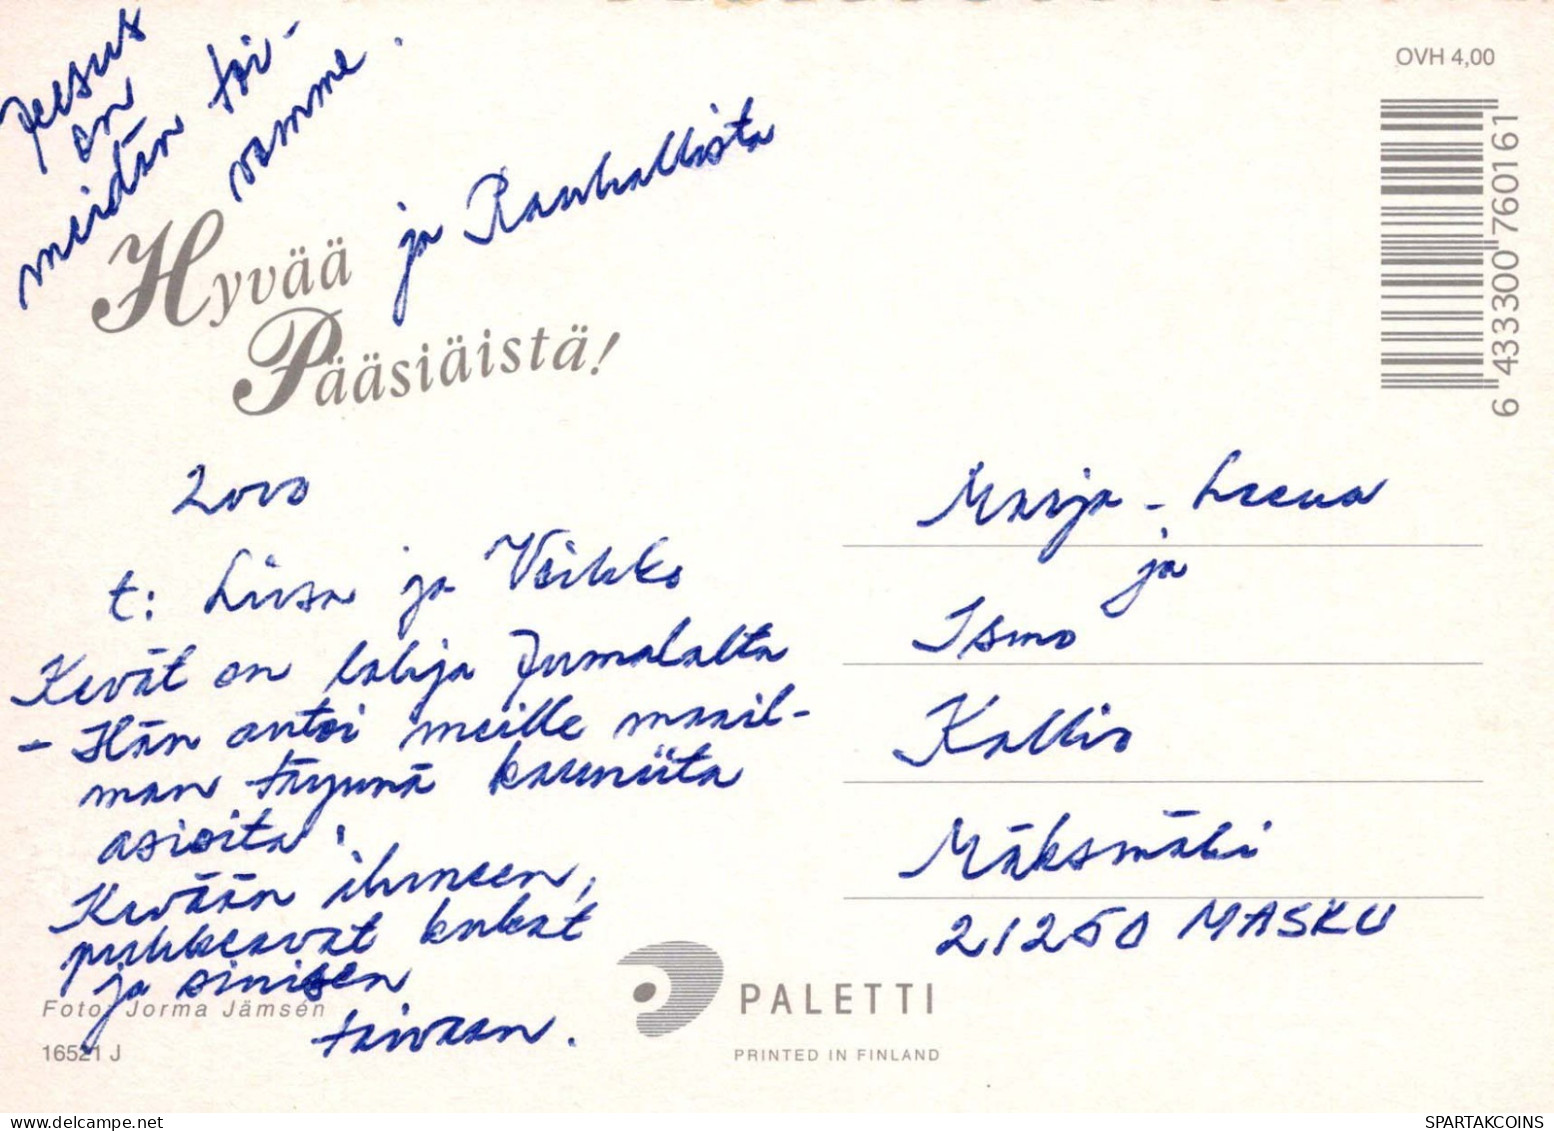 Jeesus
on
meidän toi-
vomme.
OVH 4,00
6 433300 760161
Hyvää ja Rauhallista
Pääsiäistä!
2000
t: Liisa ja Veikko
Kevät on lahja Jumalalta
- Hän antoi meille maail-
man täynnä kauniita
asioita.
Kevään ihmeen,
puhkeavat kukat
ja sinisen
taivaan.
Marja-Leena
ja
Ismo
Kallio
Mäksmäki
21250 MASKU
Foto: Jorma Jämsén
16521 J
PALETTI
PRINTED IN FINLAND
SPARTAKCOINS